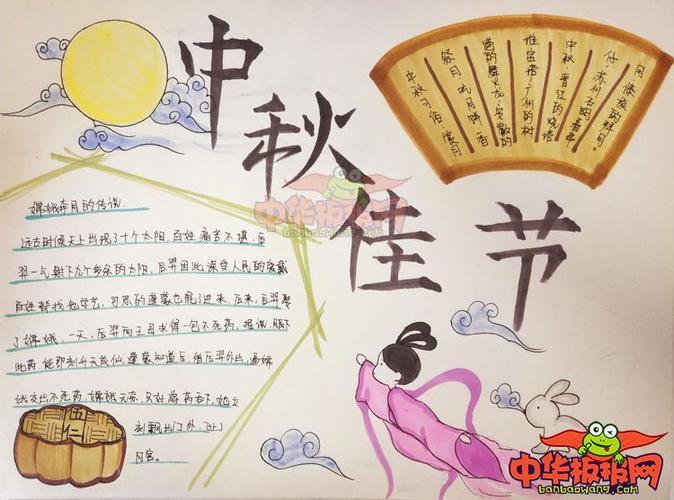 中秋佳节
嫦娥奔月的传说
远古时候天上出现了十个太阳,百姓痛苦不堪,后
羿一气射下九个多余的太阳,后羿因此深受人民的爱戴
百姓都找他学艺,可恶的逢蒙也混了进来 后来,后羿娶
了嫦娥,一天,后羿向王母求得一包不死药,据说,服下
此药,能即刻升天成仙,逢蒙知道后,后羿外出,逼嫦
娥交出不死药,嫦娥无奈,只好将药吞下,她立
刻飘出门外,飞上
月宫。
中秋习俗:赏月
祭月·吃月饼·香
港的舞火龙·安徽的
堆宝塔·广州的树
中秋·晋江的烧塔
仔·苏州石湖看串
月·傣族的拜月。
五仁
中华板报网
banbaowang.com
中华板报网
banbaowang.com